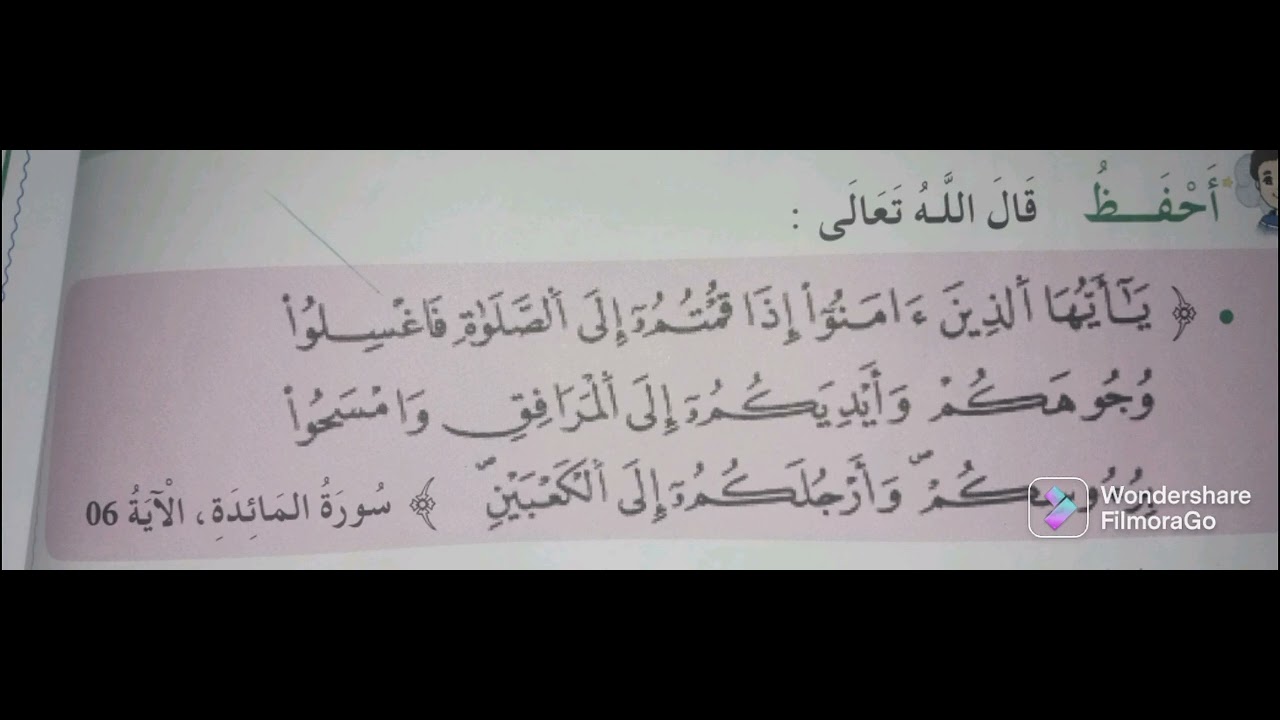 أَحْفَظُ قَالَ اللَّهُ تَعَالَى :
• ﴿ يَٰٓأَيُّهَا اَ۬لذِينَ ءَامَنُوٓاْ إِذَا قُمْتُمُۥٓ إِلَى اَ۬لصَّلَوٰةِ فَاغْسِلُواْ
وُجُوهَكُمْ وَأَيْدِيَكُمُۥٓ إِلَى اَ۬لْمَرَافِقِ وَامْسَحُواْ
بِرُءُوسِكُمْ وَأَرْجُلَكُمُۥٓ إِلَى اَ۬لْكَعْبَيْنِ ﴾ سُورَةُ المَائِدَةِ، الْآيَةُ 06
Wondershare
FilmoraGo